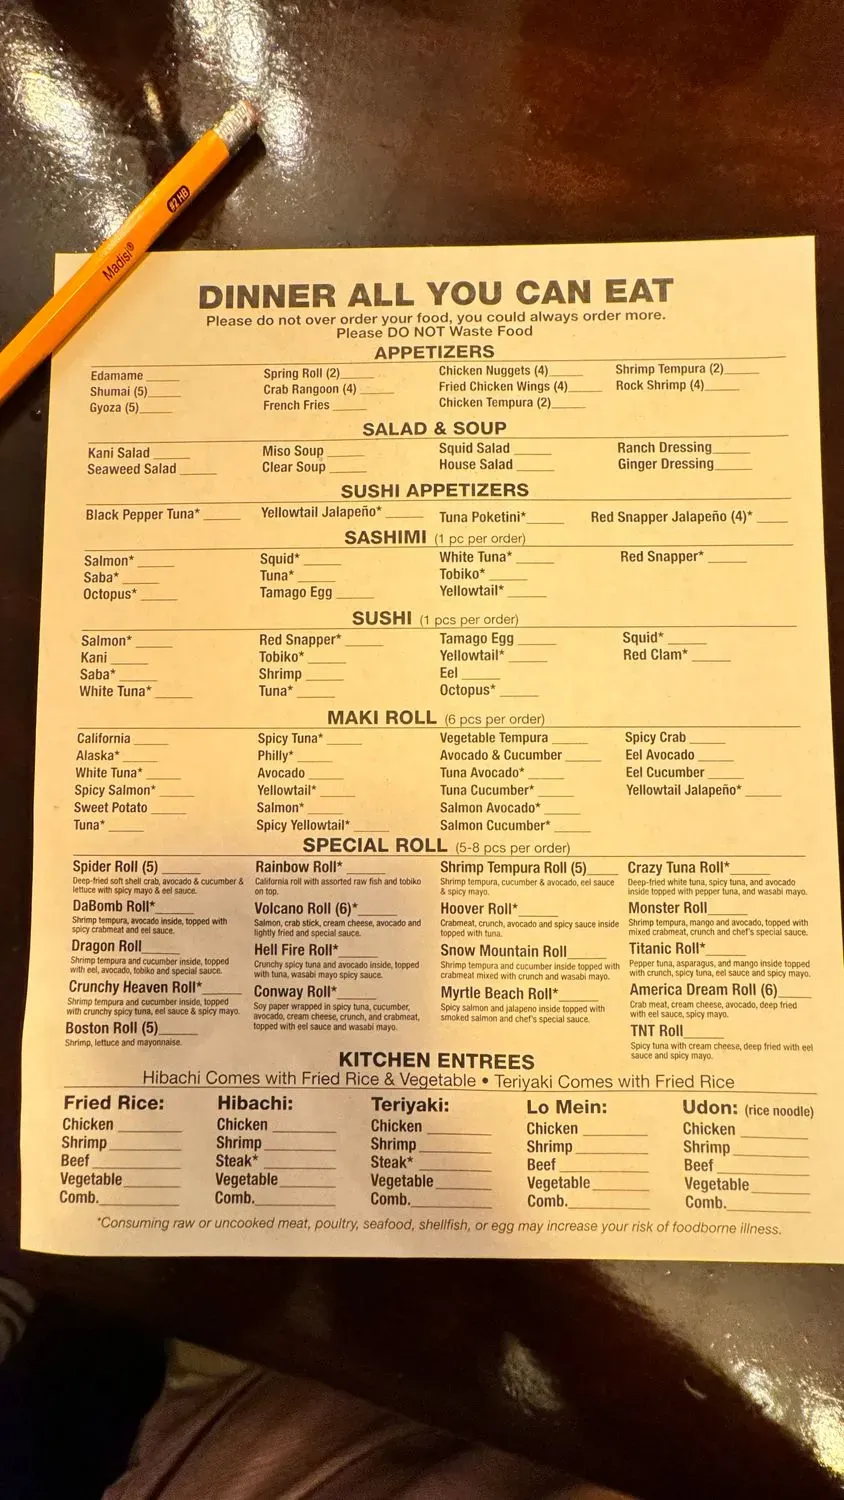 #2 HB
Madisi®
DINNER ALL YOU CAN EAT
Please do not over order your food, you could always order more.
Please DO NOT Waste Food
APPETIZERS
Edamame _____ Spring Roll (2)_____ Chicken Nuggets (4)_____ Shrimp Tempura (2)_____
Shumai (5)_____ Crab Rangoon (4) _____ Fried Chicken Wings (4)_____ Rock Shrimp (4)_____
Gyoza (5)_____ French Fries _____ Chicken Tempura (2)_____
SALAD & SOUP
Kani Salad _____ Miso Soup _____ Squid Salad _____ Ranch Dressing_____
Seaweed Salad _____ Clear Soup _____ House Salad _____ Ginger Dressing_____
SUSHI APPETIZERS
Black Pepper Tuna* _____ Yellowtail Jalapeño* _____ Tuna Poketini*_____ Red Snapper Jalapeño (4)* _____
SASHIMI (1 pc per order)
Salmon* _____ Squid* _____ White Tuna* _____ Red Snapper* _____
Saba* _____ Tuna* _____ Tobiko* _____
Octopus* _____ Tamago Egg _____ Yellowtail* _____
SUSHI (1 pcs per order)
Salmon* _____ Red Snapper* _____ Tamago Egg _____ Squid* _____
Kani _____ Tobiko* _____ Yellowtail* _____ Red Clam* _____
Saba* _____ Shrimp _____ Eel _____
White Tuna* _____ Tuna* _____ Octopus* _____
MAKI ROLL (6 pcs per order)
California _____ Spicy Tuna* _____ Vegetable Tempura _____ Spicy Crab _____
Alaska* _____ Philly* _____ Avocado & Cucumber _____ Eel Avocado _____
White Tuna* _____ Avocado _____ Tuna Avocado* _____ Eel Cucumber _____
Spicy Salmon* _____ Yellowtail* _____ Tuna Cucumber* _____ Yellowtail Jalapeño* _____
Sweet Potato _____ Salmon* _____ Salmon Avocado* _____
Tuna* _____ Spicy Yellowtail* _____ Salmon Cucumber* _____
SPECIAL ROLL (5-8 pcs per order)
Spider Roll (5) _____
Deep-fried soft shell crab, avocado & cucumber &
lettuce with spicy mayo & eel sauce.
DaBomb Roll*_____
Shrimp tempura, avocado inside, topped with
spicy crabmeat and eel sauce.
Dragon Roll_____
Shrimp tempura and cucumber inside, topped
with eel, avocado, tobiko and special sauce.
Crunchy Heaven Roll*_____
Shrimp tempura and cucumber inside, topped
with crunchy spicy tuna, eel sauce & spicy mayo.
Boston Roll (5)_____
Shrimp, lettuce and mayonnaise.
Rainbow Roll*_____
California roll with assorted raw fish and tobiko
on top.
Volcano Roll (6)*_____
Salmon, crab stick, cream cheese, avocado and
lightly fried and special sauce.
Hell Fire Roll*_____
Crunchy spicy tuna and avocado inside, topped
with tuna, wasabi mayo spicy sauce.
Conway Roll*_____
Soy paper wrapped in spicy tuna, cucumber,
avocado, cream cheese, crunch, and crabmeat,
topped with eel sauce and wasabi mayo.
Shrimp Tempura Roll (5)_____
Shrimp tempura, cucumber & avocado, eel sauce
& spicy mayo.
Hoover Roll*_____
Crabmeat, crunch, avocado and spicy sauce inside
topped with tuna.
Snow Mountain Roll_____
Shrimp tempura and cucumber inside topped with
crabmeat mixed with crunch and wasabi mayo.
Myrtle Beach Roll*_____
Spicy salmon and jalapeno inside topped with
smoked salmon and chef's special sauce.
Crazy Tuna Roll*_____
Deep-fried white tuna, spicy tuna, and avocado
inside topped with pepper tuna, and wasabi mayo.
Monster Roll_____
Shrimp tempura, mango and avocado, topped with
mixed crabmeat, crunch and chef's special sauce.
Titanic Roll*_____
Pepper tuna, asparagus, and mango inside topped
with crunch, spicy tuna, eel sauce and spicy mayo.
America Dream Roll (6)_____
Crab meat, cream cheese, avocado, deep fried
with eel sauce, spicy mayo.
TNT Roll_____
Spicy tuna with cream cheese, deep fried with eel
sauce and spicy mayo.
KITCHEN ENTREES
Hibachi Comes with Fried Rice & Vegetable • Teriyaki Comes with Fried Rice
Fried Rice: Hibachi: Teriyaki: Lo Mein: Udon: (rice noodle)
Chicken _____ Chicken _____ Chicken _____ Chicken _____ Chicken _____
Shrimp _____ Shrimp _____ Shrimp _____ Shrimp _____ Shrimp _____
Beef _____ Steak* _____ Steak* _____ Beef _____ Beef _____
Vegetable _____ Vegetable _____ Vegetable _____ Vegetable _____ Vegetable _____
Comb. _____ Comb. _____ Comb. _____ Comb. _____ Comb. _____
*Consuming raw or uncooked meat, poultry, seafood, shellfish, or egg may increase your risk of foodborne illness.